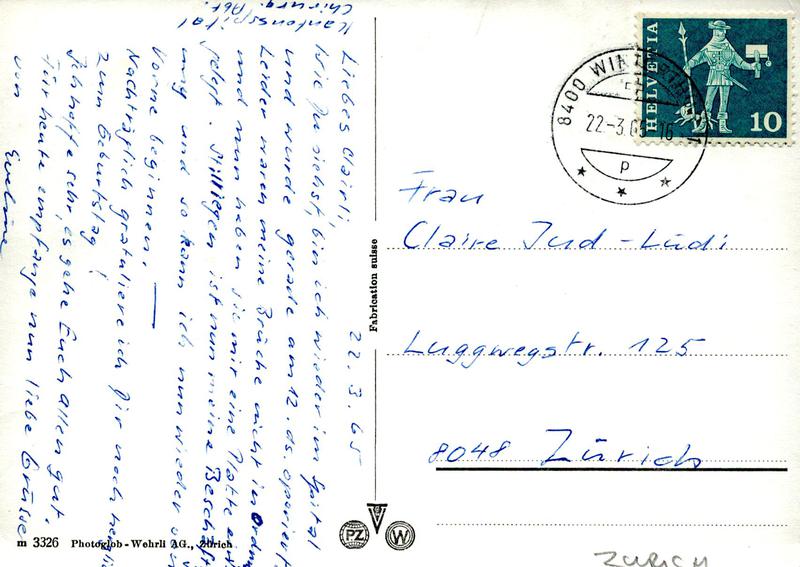 Kantonsspital
Chirurg. Abt.
22.3.65
Liebes Clairli,
Wie Du siehst, bin ich wieder im Spital
und wurde gerade am 12. ds. operiert.
Leider waren meine Brüche nicht in Ordn
und nun haben sie mir eine Platte auf
gelegt. Stillliegen ist nun meine Beschäft
ung und so kann ich nun wieder von
vorne beginnen. —
Nachträglich gratuliere ich Dir noch herzli
zum Geburtstag!
Ich hoffe sehr, es gehe Euch allen gut.
Für heute empfange nun liebe Grüsse
von Eveline
Fabrication suisse
m 3326 Photoglob-Wehrli AG., Zürich
PZ
W
HELVETIA
10
8400 WINTERTHUR 1
22-3.65-16
p
Frau
Claire Jud-Lüdi
Luggwegstr. 125
8048 Zürich
ZURICH